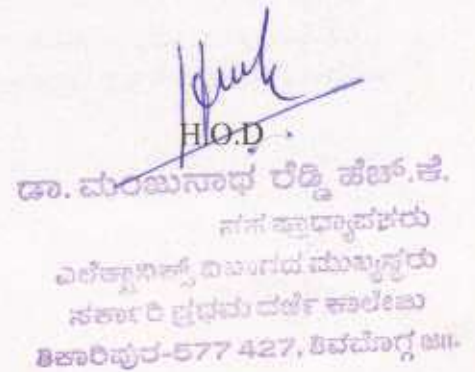 H.O.D
ಡಾ. ಮಂಜುನಾಥ ರೆಡ್ಡಿ ಹೆಚ್.ಕೆ.
ಸಹ ಪ್ರಾಧ್ಯಾಪಕರು
ಎಲೆಕ್ಟ್ರಾನಿಕ್ಸ್ ವಿಭಾಗದ ಮುಖ್ಯಸ್ಥರು
ಸರ್ಕಾರಿ ಪ್ರಥಮ ದರ್ಜೆ ಕಾಲೇಜು
ಶಿಕಾರಿಪುರ-577 427, ಶಿವಮೊಗ್ಗ ಜಿ||.